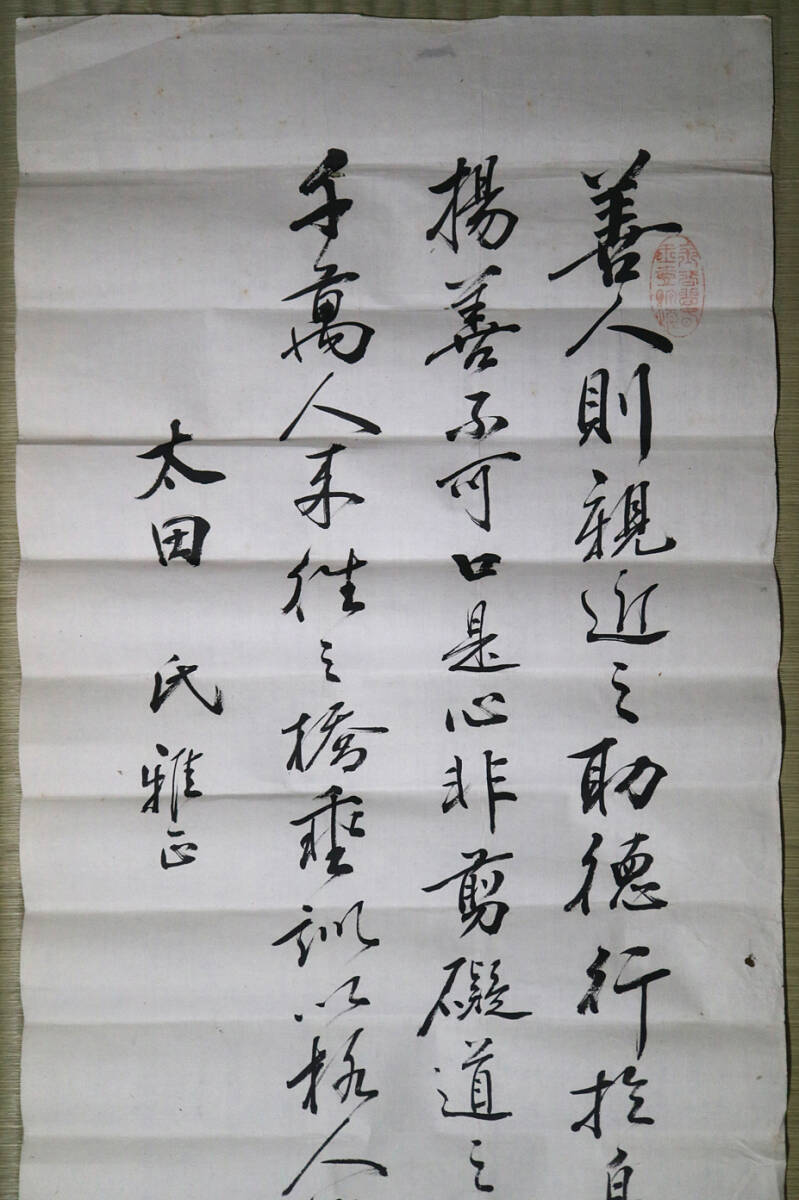 善人則親近之助德行於身
揚善不可口是心非剪礙道之
千萬人來往之橋垂訓以格人
太田 氏雅正